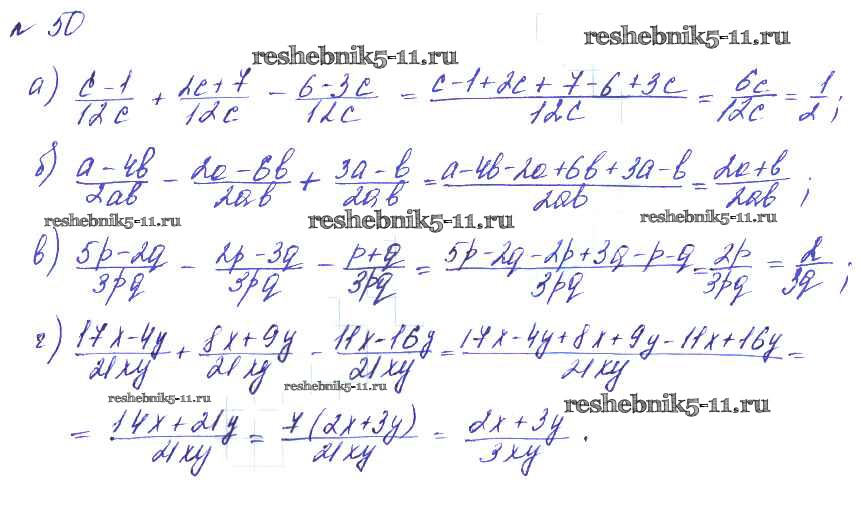 № 50
reshebnik5-11.ru
reshebnik5-11.ru
а) (c-1)/(12c) + (2c+7)/(12c) - (6-3c)/(12c) = (c-1+2c+7-6+3c)/(12c) = 6c/(12c) = 1/2;
б) (a-4b)/(2ab) - (2a-6b)/(2ab) + (3a-b)/(2ab) = (a-4b-2a+6b+3a-b)/(2ab) = (2a+b)/(2ab);
reshebnik5-11.ru
reshebnik5-11.ru
reshebnik5-11.ru
в) (5p-2q)/(3pq) - (2p-3q)/(3pq) - (p+q)/(3pq) = (5p-2q-2p+3q-p-q)/(3pq) = 2p/(3pq) = 2/(3q);
г) (17x-4y)/(21xy) + (8x+9y)/(21xy) - (11x-16y)/(21xy) = (17x-4y+8x+9y-11x+16y)/(21xy) =
reshebnik5-11.ru
reshebnik5-11.ru
reshebnik5-11.ru
= (14x+21y)/(21xy) = 7(2x+3y)/(21xy) = (2x+3y)/(3xy).